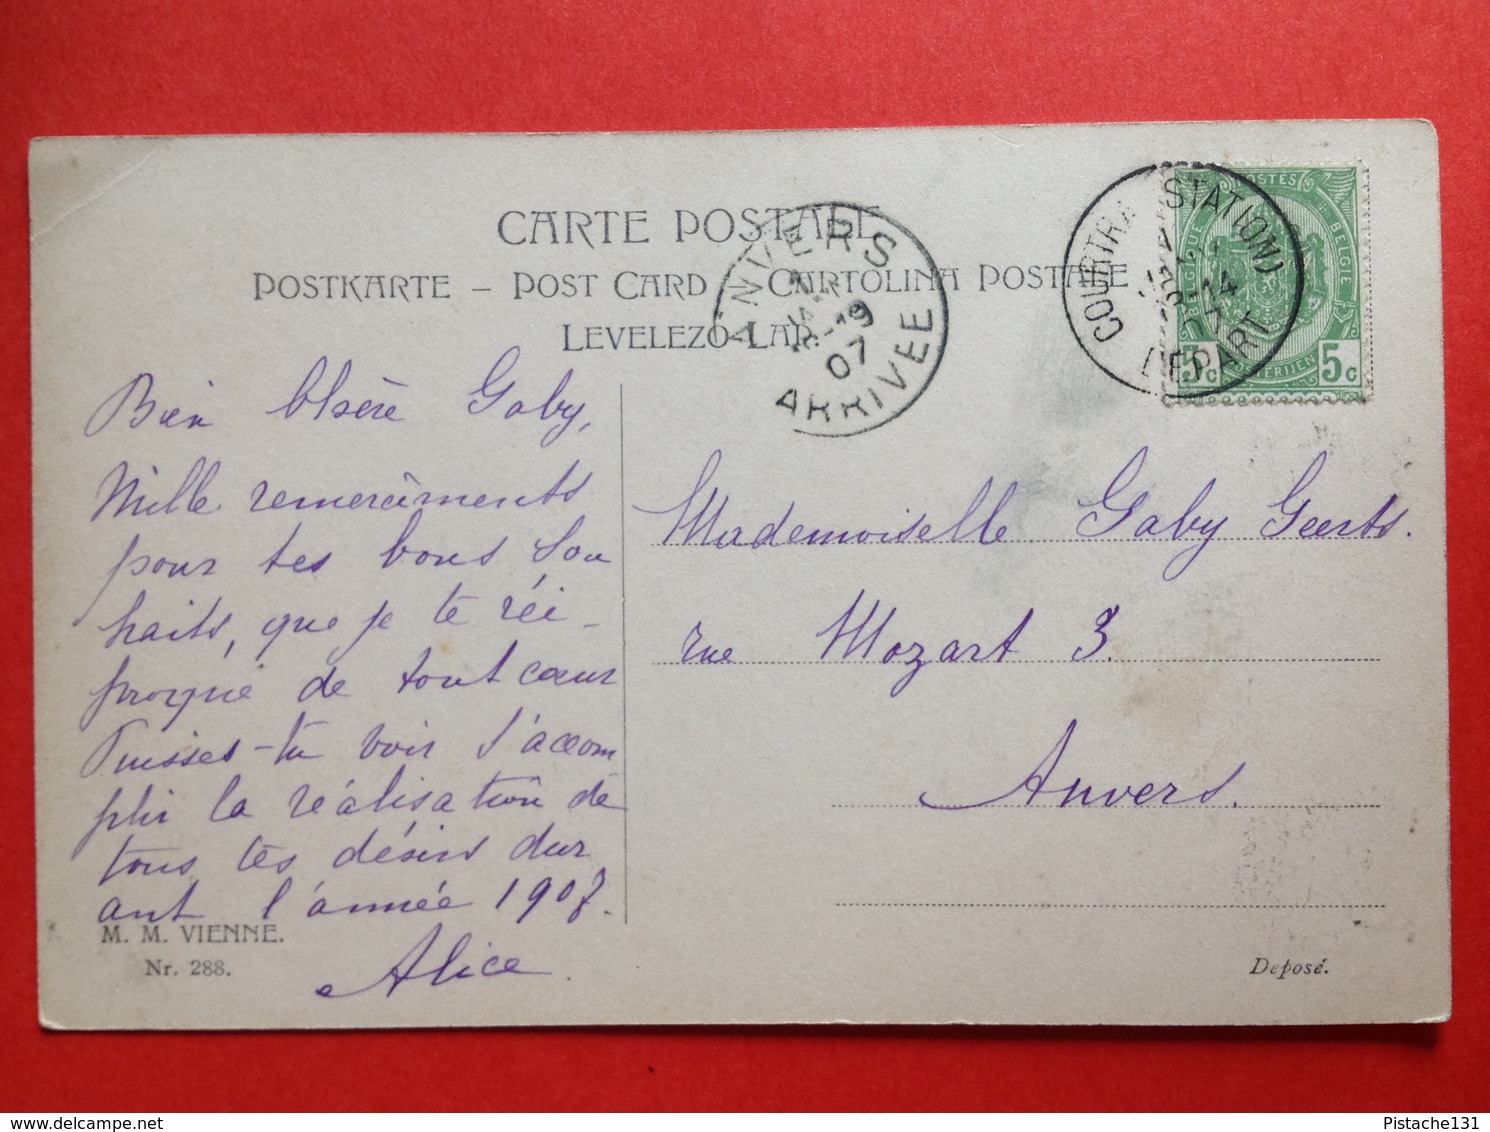 CARTE POSTALE
POSTKARTE – POST CARD – CARTOLINA POSTALE
LEVELEZŐ-LAP.
ANVERS
19
07
ARRIVEE
COURTRAI (STATION)
14
07
DEPART
POSTES
BELGIQUE
BELGIE
POSTERIJEN
5c
5c
Bien chère Gaby,
Mille remercîments
pour tes bons sou
haits, que je te réi-
proque de tout cœur
Puisses-tu voir s'accom
plir la réalisation de
tous tes désirs dur
ant l'année 1907.
Alice
Mademoiselle Gaby Geerts.
rue Mozart 3.
Anvers.
M. M. VIENNE.
Nr. 288.
Deposé.
Pistache131